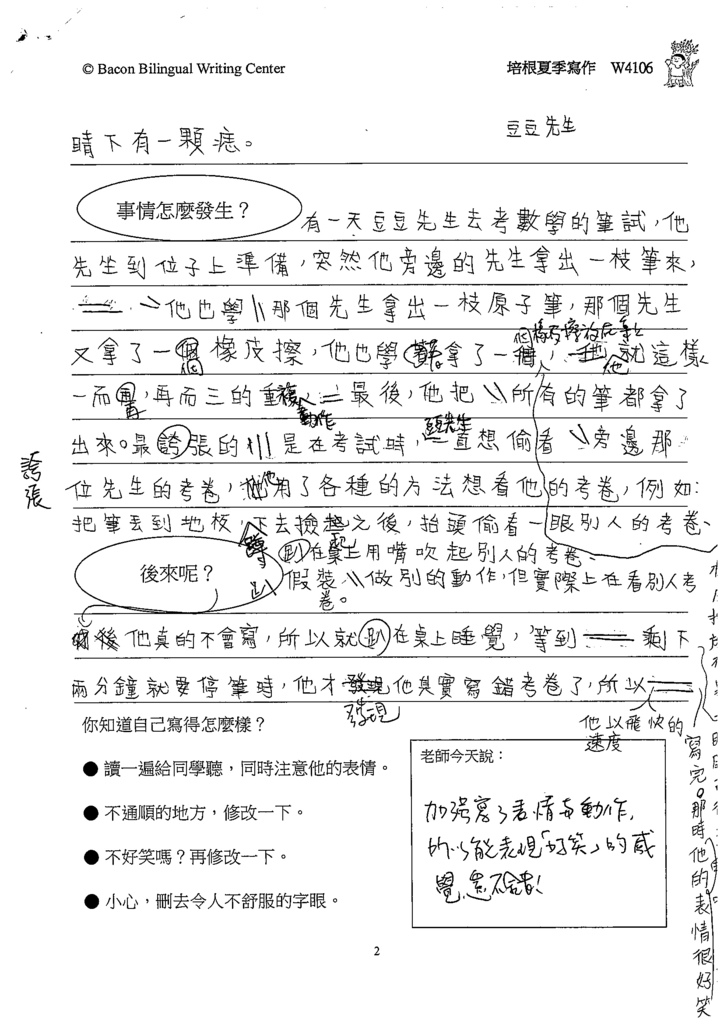 © Bacon Bilingual Writing Center
培根夏季寫作 W4106
豆豆先生
睛下有一顆痣。
事情怎麼發生？
有一天豆豆先生去考數學的筆試，他
先坐到位子上準備，突然他旁邊的先生拿出一枝筆來，
他也學 那個先生拿出一枝原子筆，那個先生
又拿了一個橡皮擦，他也學 拿了一個，他就這樣
一而再，再而三的重複動作，最後，他把 所有的筆都拿了
出來。最誇張的 是在考試時，豆豆先生一直想偷看 旁邊那
誇張
位先生的考卷，他用了各種的方法想看他的考卷，例如：
把筆丟到地板，蹲下去撿起之後，抬頭偷看一眼別人的考卷、
趴在桌上用嘴吹起別人的考卷、
後來呢？
假裝 做別的動作，但實際上在看別人考
卷。
後他真的不會寫，所以就趴在桌上睡覺，等到 剩下
兩分鐘就要停筆時，他才發現他其實寫錯考卷了，所以
發現
他以飛快的
速度
寫完。那時他的表情很好笑
你知道自己寫得怎麼樣？
● 讀一遍給同學聽，同時注意他的表情。
● 不通順的地方，修改一下。
● 不好笑嗎？再修改一下。
● 小心，刪去令人不舒服的字眼。
老師今天說：
加強寫了表情與動作，
所以能表現「好笑」的感
覺，意不錯！
2